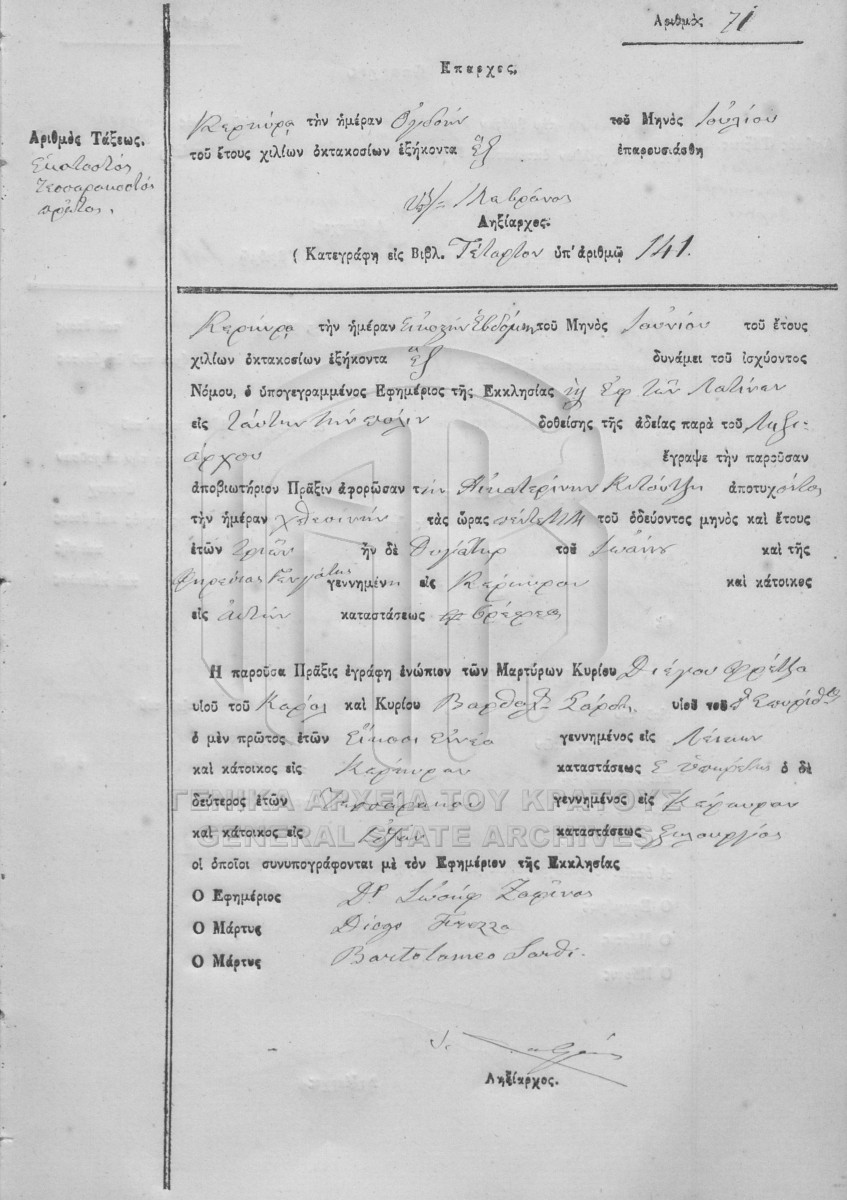 Αριθμὸς 71
Επαρχες.
Αριθμὸς Τάξεως.
Εἰκοστὸς
Τεσσαρακοστὸς
πρῶτος.
Κερκύρᾳ τὴν ἡμέραν Ὀγδόην τοῦ Μηνὸς Ἰουλίου
τοῦ ἔτους χιλίων ὀκτακοσίων ἑξήκοντα ἓξ ἐπαρουσιάσθη
Μαβρόνας
Ληξίαρχος.
( Κατεγράφη εἰς Βιβλ. Τέταρτον ὑπ' ἀριθμῷ 141.
Κερκύρᾳ τὴν ἡμέραν Εἰκοστὴν Ἑβδόμην τοῦ Μηνὸς Ἰουνίου τοῦ ἔτους
χιλίων ὀκτακοσίων ἑξήκοντα ἓξ δυνάμει τοῦ ἰσχύοντος
Νόμου, ὁ ὑπογεγραμμένος Ἐφημέριος τῆς Ἐκκλησίας τῶν Λατίνων
εἰς ταύτην τὴν πόλιν δοθείσης τῆς ἀδείας παρὰ τοῦ Ληξι-
άρχου ἔγραψε τὴν παροῦσαν
ἀποβιωτήριον Πρᾶξιν ἀφορῶσαν τὴν Αἰκατερίνην ἀποτυχόντος
τὴν ἡμέραν χθεσινὴν τὰς ὥρας πέντε τοῦ ὁδεύοντος μηνὸς καὶ ἔτους
ἐτῶν τριῶν ἦν δὲ θυγάτηρ τοῦ Ἰωάννου καὶ τῆς
γεννημένη εἰς Κέρκυραν καὶ κάτοικος
εἰς αὐτὴν καταστάσεως βρέφος
Η παροῦσα Πρᾶξις ἐγράφη ἐνώπιον τῶν Μαρτύρων Κυρίου Διέγου Φρέτζα
υἱοῦ τοῦ Καρόλ. καὶ Κυρίου Βαρθολ. Σάρδη υἱοῦ τοῦ Σπυρίδ.
ὁ μὲν πρῶτος ἐτῶν Εἴκοσι ἐννέα γεννημένος εἰς Λέτζων
καὶ κάτοικος εἰς Κέρκυραν καταστάσεως ὑπηρέτης ὁ δὲ
δεύτερος ἐτῶν Τεσσαράκοντα γεννημένος εἰς Κέρκυραν
καὶ κάτοικος εἰς καταστάσεως Ξυλουργός
οἱ ὁποῖοι συνυπογράφονται μὲ τὸν Ἐφημέριον τῆς Ἐκκλησίας
Ο Ἐφημέριος Δρ Ἰωσὴφ
Ο Μάρτυς Diego Frezza
Ο Μάρτυς Bartolomeo Sardi
Ληξίαρχος.
ΓΕΝΙΚΑ ΑΡΧΕΙΑ ΤΟΥ ΚΡΑΤΟΥΣ
GENERAL STATE ARCHIVES